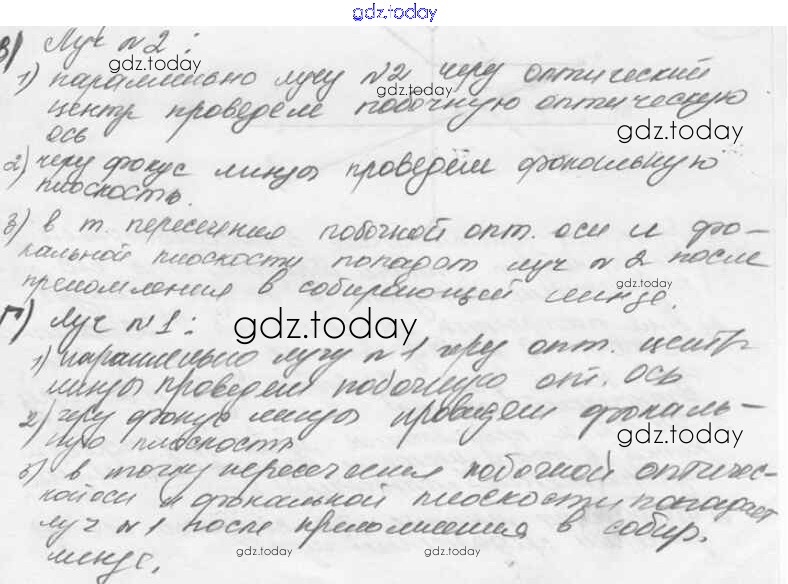 gdz.today
в) Луч №2:
1) параллельно лучу №2 через оптический
gdz.today
центр проведем побочную оптическую
ось
gdz.today
2) через фокус линзы проведём фокальную
плоскость.
3) в т. пересечения побочной опт. оси и фо-
кальной плоскости попадает луч №2 после
преломления в собирающей линзе.
gdz.today
г) Луч №1:
gdz.today
1) параллельно лучу №1 через опт. центр
линзы проведем побочную опт. ось
2) через фокус линзы проведем фокаль-
ную плоскость
gdz.today
3) в точку пересечения побочной оптичес-
кой оси и фокальной плоскости попадает
луч №1 после преломления в собир.
линзе.
gdz.today
gdz.today